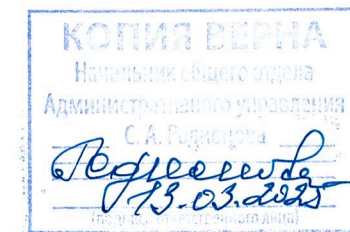 КОПИЯ ВЕРНА
Начальник общего отдела
Административного управления
С. А. Родионова
Родионова
13.03.2025
(подпись ответственного лица)